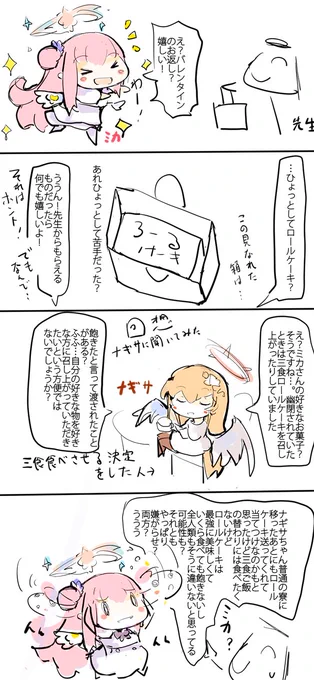 え？バレンタイン
のお返し？
嬉しい！
わー
ミカ
先生
…ひょっとしてロールケーキ？
この見なれた
箱は…
ロール
ケーキ
あれひょっとして苦手だった？
ううん！先生からもらえる
ものだったら
何でも嬉しいよ
それは
ホント！
でも
なんで…
ナギサに聞いてみた
え？ミカさんの好きなお菓子？
そうですね…幽閉されていた
ときは三食ロールケーキを召し
上がったりしていました
ナギサ
飽きたと言って渡されたこと
がある？
ふふ…自分の好きな物を好き
な方に召し上がっていただき
たいという方便では
ないでしょうか？
三食食べさせる決定
をした人→
ナギサちゃん普通の寮に
移ったあとにもロール
ケーキ送ってくれて
当てつけなのかも
思ったけど三食ご飯
の替わりには食べたく
ないけど
ロールケーキは
最強に美味しくて
いくら食べても飽きないし
全人類もそうに違いないと思ってる
可能性も？
やっぱり
嫌がらせ？
それとも
両方？
ううう
ミカ？